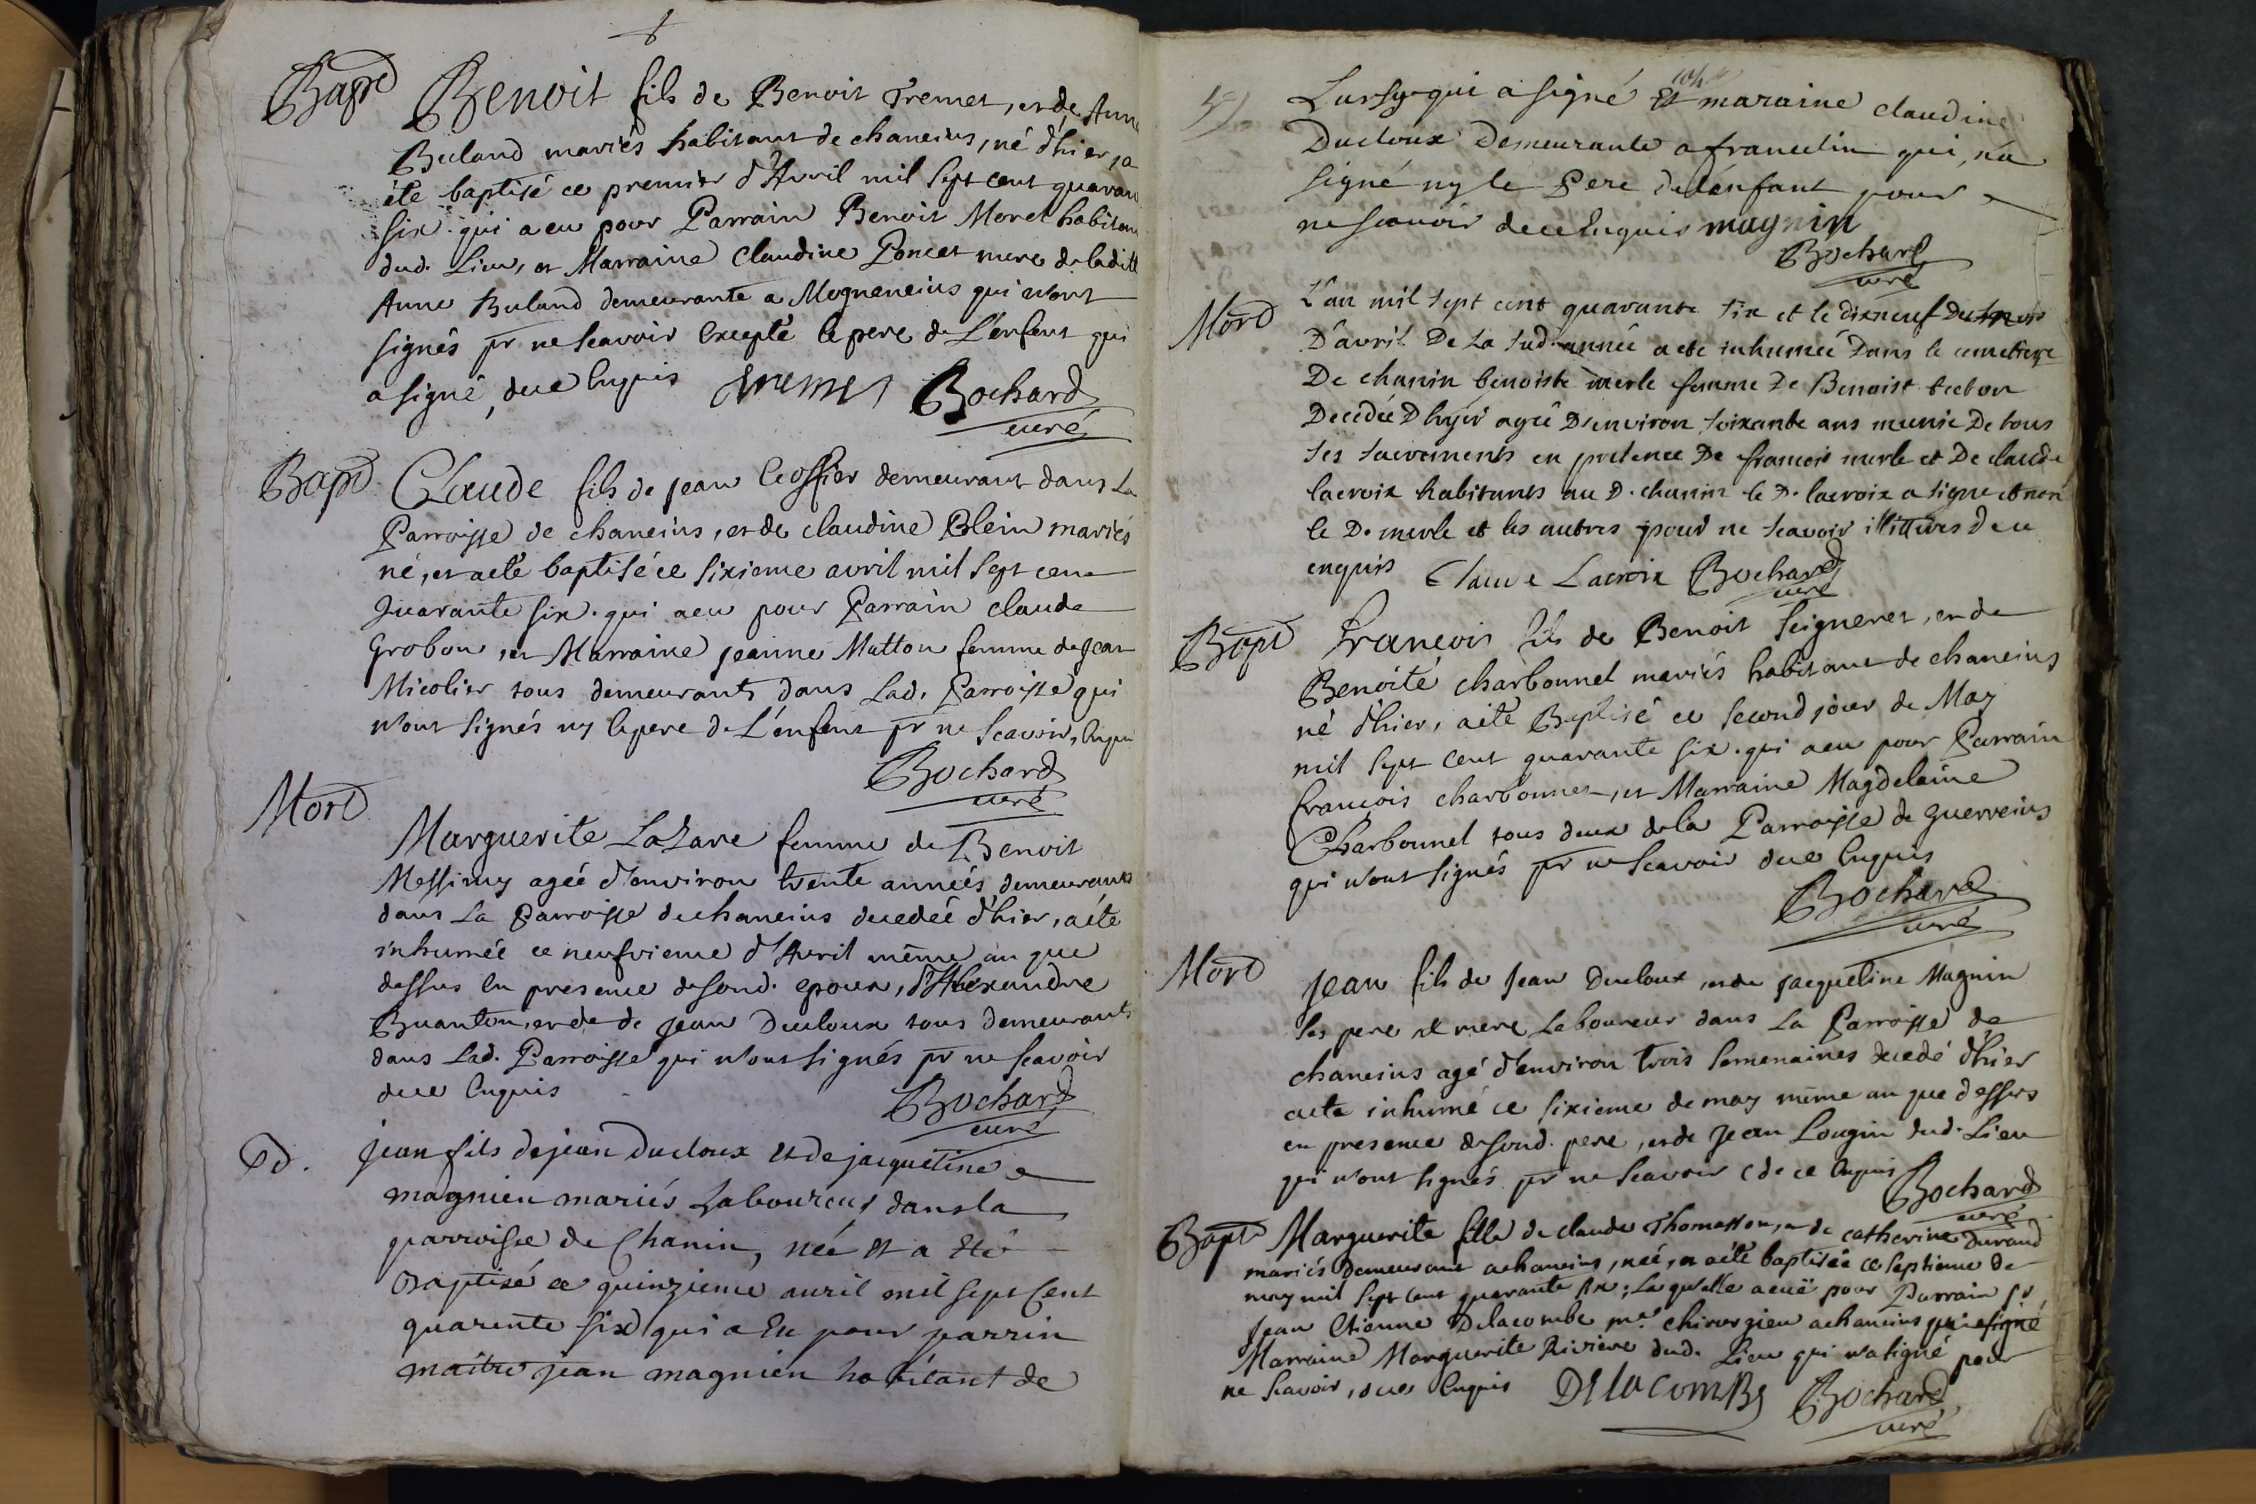 Bapt Benoit fils de Benoit Tremet, et de Anne
Buland mariés habitant de chaneins, né d'hier, a
été baptisé ce premier d'Avril mil sept cent quaran
six. qui a eu pour Parrain Benoit Morel habitan
dud. Lieu, et Marraine Claudine Poncet mere de laditte
Anne Buland demeurante a Mogneneins qui n'ont
signés pr ne scavoir Excepté le pere de L'enfent qui
a signé, de ce Enquis tremet Bochard
curé
Bapt Claude fils de jean Croffier demeurant dans La
Parroisse de chaneins, et de claudine Blein mariés
né, et a eté baptisé ce sixieme avril mil sept cent
quarante six. qui a eu pour Parrain claude
Grobon, et Marraine jeanne Mutton femme de jean
Micolier tous demeurants dans Lad. Parroisse qui
n'ont signés ny le pere de L'énfent pr ne scavoir, Enquis
Bochard
curé
Mort
Marguerite Lazare femme de Benoit
Messimy agéé d'environ trente années demeurants
dans La Parroisse de chaneins decedéé d'hier, a éte
inhumée ce neufvieme d'Avril même an que
dessus En presence de sond. epoux, d'Alexandre
Buanton, et de de jean Ducloux tous demeurants
dans Lad. Parroisse qui n'ont signés pr ne scavoir
de ce Enquis
Bochard
curé
Bd. jean fils de jean Ducloux et de jacqueline
magnien mariés Laboureus dans la
parroisse de Chanin, née et a Eté
Baptisé ce quinzieme auril mil sept Cent
quarente six qui a Eu pour parrin
maitre jean magnien habitant de
Lurcy qui a signé Et maraine claudine
Ducloux Demeurante a francelin qui n'a
signé ny le Pere de l'énfant pour
ne scavoir de ce Enquis magnin
Bochard
curé
Mort L'an mil sept cent quarante six et le dixneuf Du mois
D'avril De La sud. année a ete inhumeé Dans le cimetiere
De chanin benoiste merle femme De Benoist
Decedée D'hyer ageé D'environ soixante ans munie De tous
ses sacrements en presence De francois merle et De claude
lacroix habitants au D. chanin le D. lacroix a signe et non
le D. merle et les autres pour ne scavoir illitterés De ce
enquis Claude Lacroix Bochard
curé
Bapt Francois fils de Benoit Seigneret, et de
Benoité charbonnel mariés habitant de chaneins
né d'hier, a été Baptisé ce second jour de May
mil sept cent quarante six. qui a eu pour Parrain
francois charbonnet, et Marraine Magdelaine
Charbonnel tous deux de la Parroisse de guerreins
qui n'ont signés pr ne scavoir de ce Enquis
Bochard
curé
Mort jean fils de Jean Ducloux, et de jacqueline Magnin
ses pere et mere Laboureur dans La Parroisse de
chaneins agé d'environ trois semenaines decedé d'hier
a eté inhumé ce sixieme de may même an que dessus
en presence de sond. pere, et de Jean Lougin dud. Lieu
qui n'ont signés pr ne scavoir de ce Enquis Bochard
curé
Bapt Marguerite fille de claude Thomasson, et de catherine Durand
mariés demeurant a chaneins, néé, et a été baptiséé ce septieme de
may mil sept cent quarante six, Laquelle a euë pour Parrain sr
Jean Etienne Delacombe me. chirurgien a chaneins qui a signé
Marraine Marguerite Riviere dud. Lieu qui n'a signé pour
ne scavoir, de ce Enquis Delacombe Bochard
curé